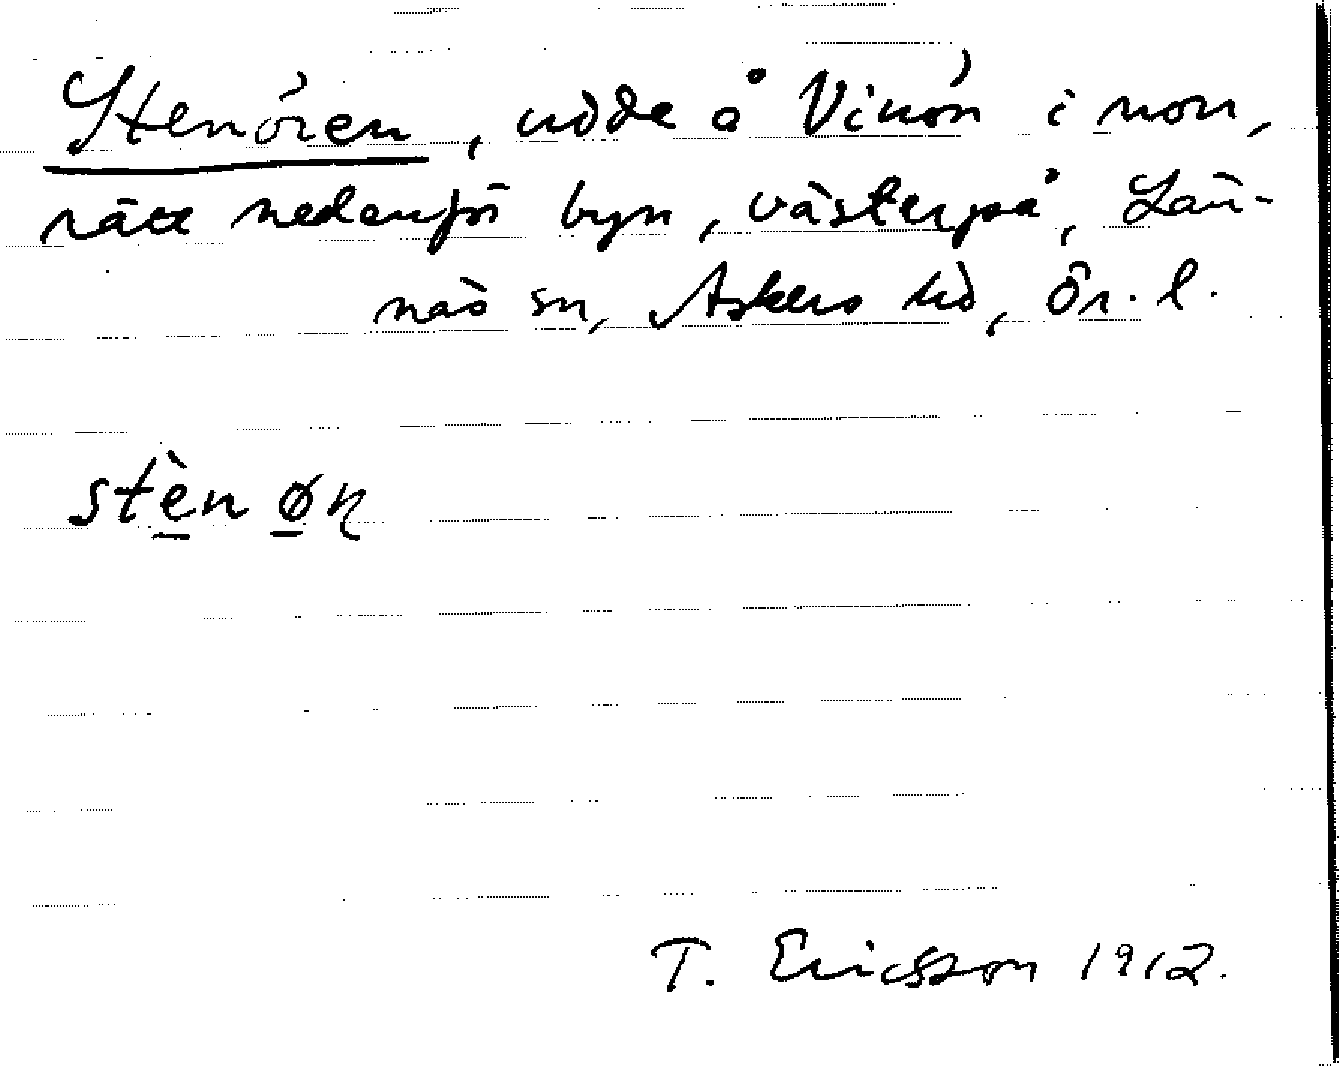 Stenören, udde å Vinön i norr,
rätt nedanför byn, västerpå, Län-
näs sn, Askers hd, Ör. l.
stèn øɳ
T. Ericsson 1912.